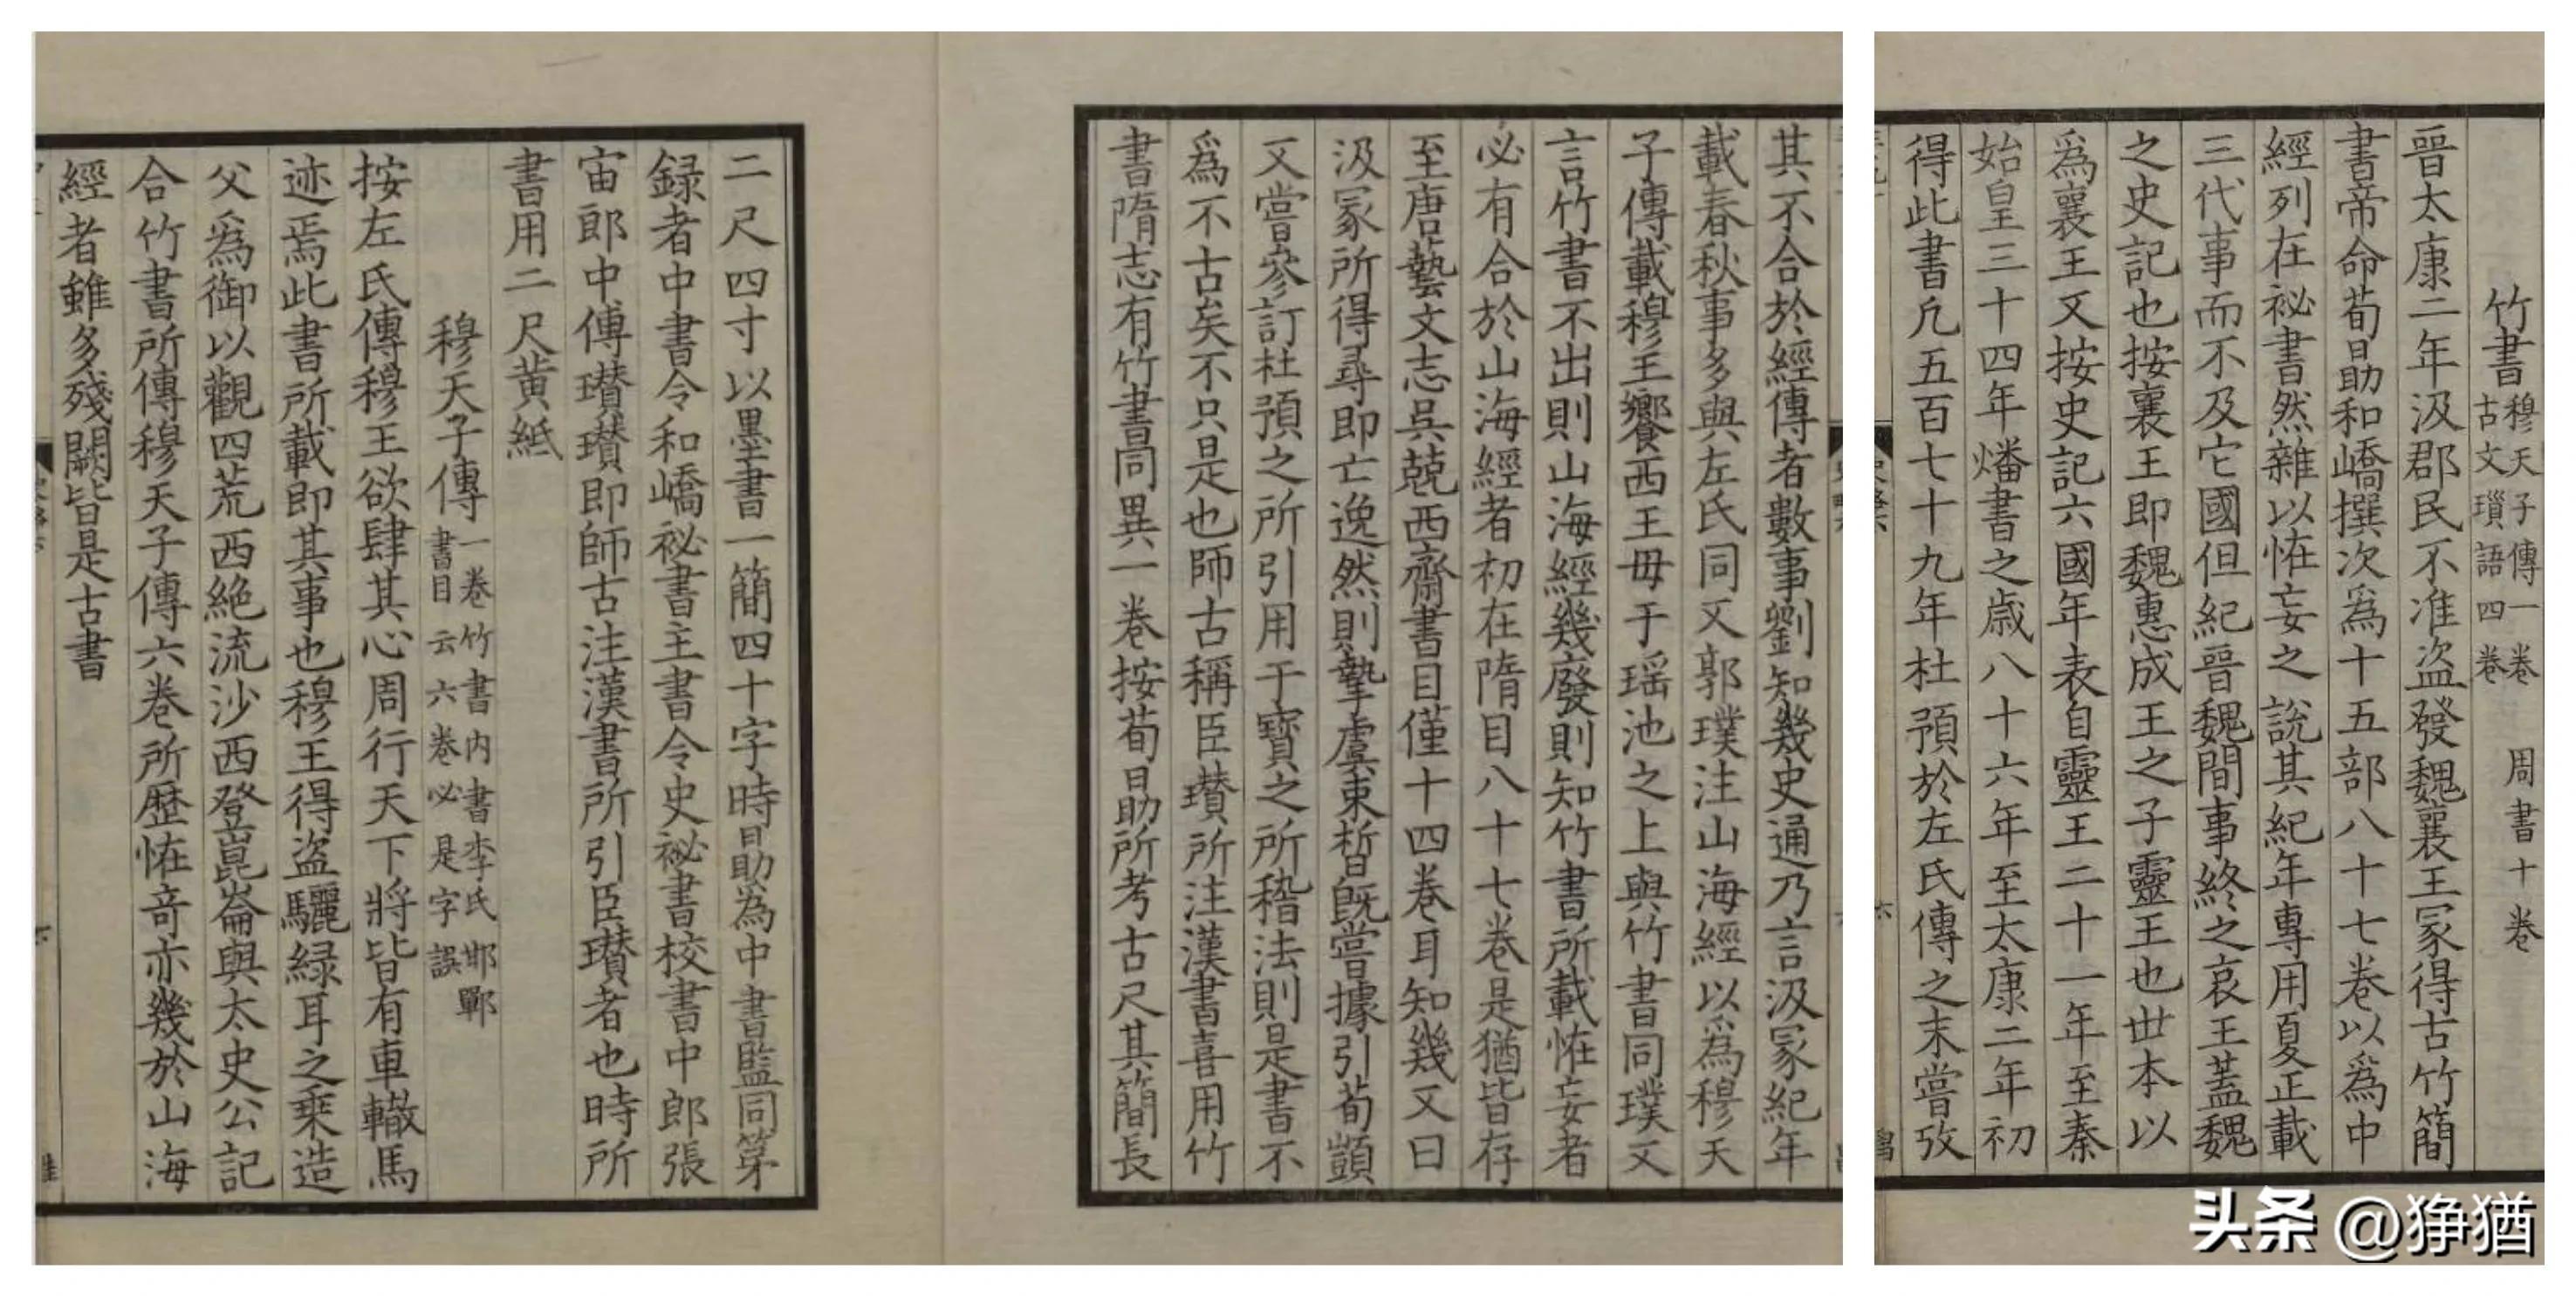 竹書穆天子傳一卷　周書十卷
古文瑣語四卷
晉太康二年汲郡民不准盜發魏襄王冢得古竹簡
書帝命荀勗和嶠撰次爲十五部八十七卷以爲中
經列在祕書然雜以恠妄之說其紀年專用夏正載
三代事而不及它國但紀晉魏間事終之哀王蓋魏
之史記也按襄王即魏惠成王之子靈王也世本以
爲襄王又按史記六國年表自靈王二十一年至秦
始皇三十四年燔書之歲八十六年至太康二年初
得此書凡五百七十九年杜預於左氏傳之末嘗攷
其不合於經傳者數事劉知幾史通乃言汲冢紀年
載春秋事多與左氏同又郭璞注山海經以爲穆天
子傳載穆王饗西王母于瑶池之上與竹書同璞又
言竹書不出則山海經幾廢則知竹書所載恠妄者
必有合於山海經者初在隋目八十七卷是猶皆存
至唐藝文志吳兢西齋書目僅十四卷耳知幾又曰
汲冢所得尋即亡逸然則摯虞束晳旣嘗據引荀顗
又嘗參訂杜預之所引用干寶之所稽法則是書不
爲不古矣不只是也師古稱臣瓉所注漢書喜用竹
書隋志有竹書同異一卷按荀勗所考古尺其簡長
二尺四寸以墨書一簡四十字時勗爲中書監同第
録者中書令和嶠祕書主書令史祕書校書中郎張
宙郎中傅瓉瓉即師古注漢書所引臣瓉者也時所
書用二尺黄紙
穆天子傳一卷竹書内書李氏邯鄲
書目云六卷必是字誤
按左氏傳穆王欲肆其心周行天下將皆有車轍馬
迹焉此書所載即其事也穆王得盜驪緑耳之乗造
父爲御以觀四荒西絶流沙西登崑崙與太史公記
合竹書所傳穆天子傳六卷所歴恠竒亦幾於山海
經者雖多殘闕皆是古書
头条 @狰猶